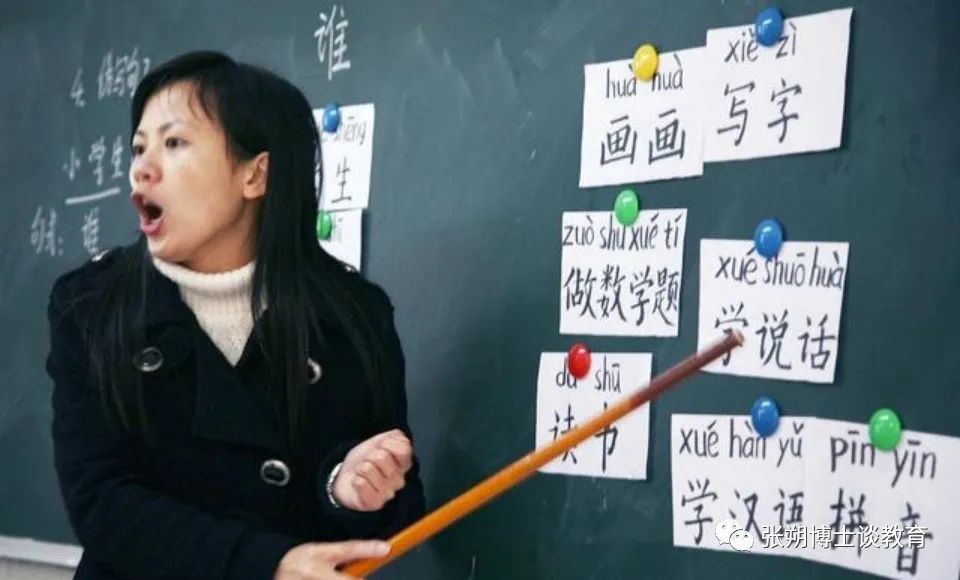 谁
小学生
句式：谁
生
huà huà
画画
xiě zì
写字
zuò shù xué tí
做数学题
xué shuō huà
学说话
dú shū
读书
xué hàn yǔ
学汉语
pīn yīn
拼音
张朔博士谈教育